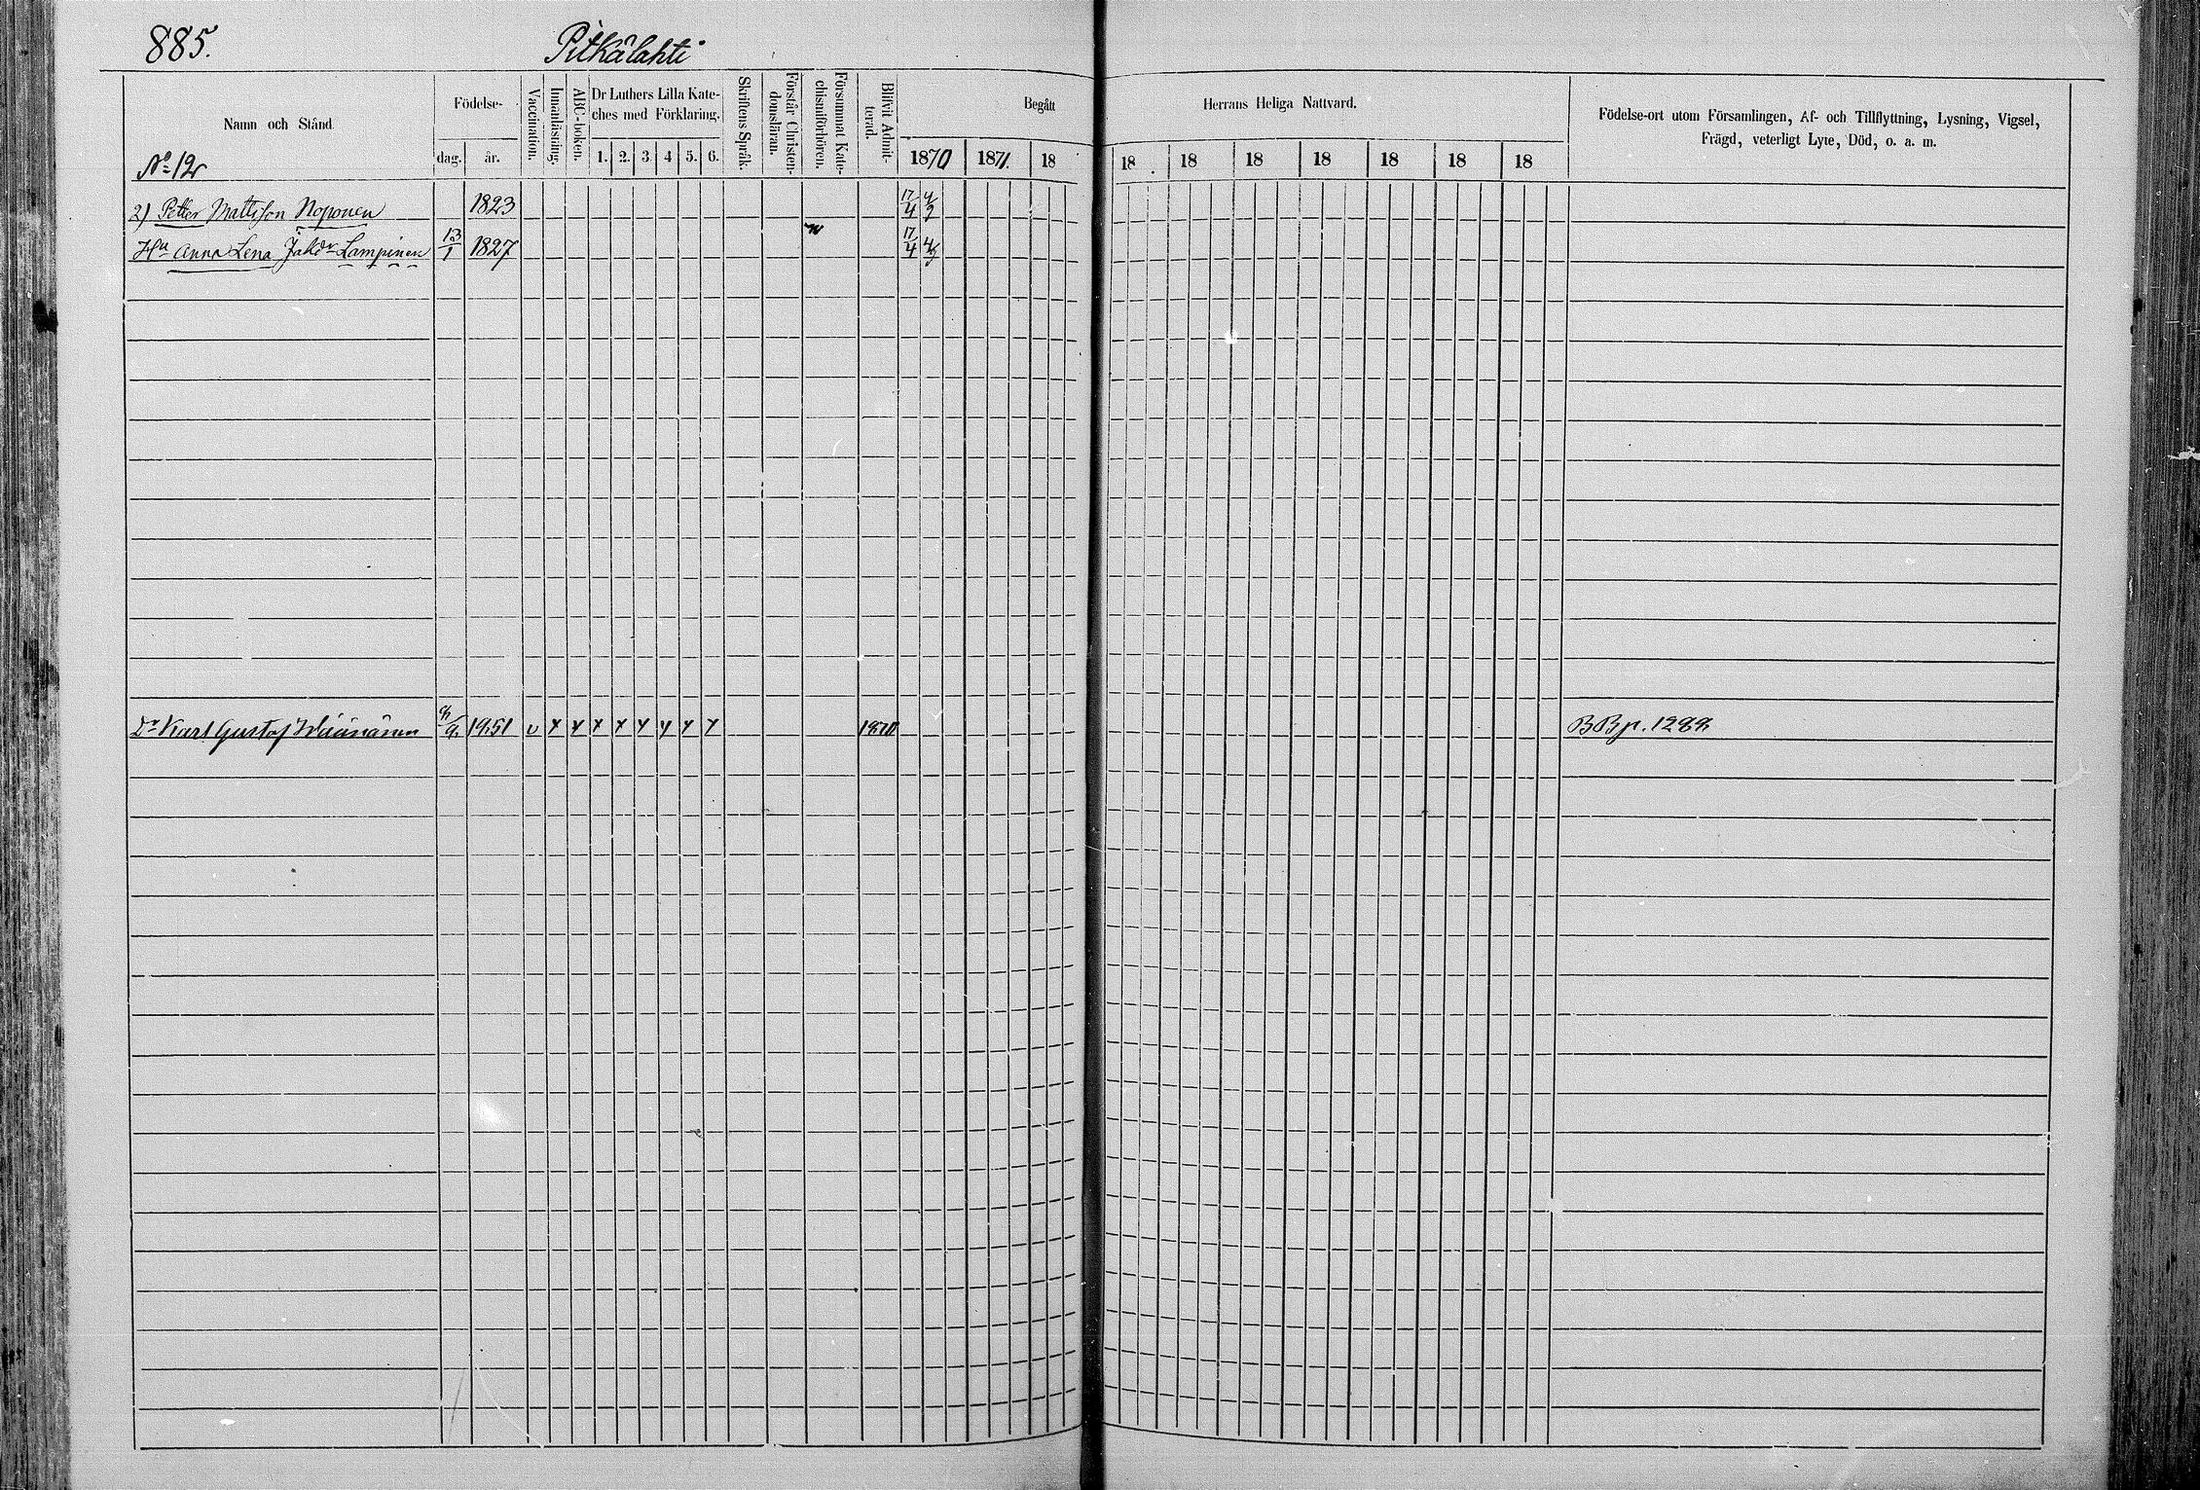 885.
Pitkälahti
Namn och Stånd.
Födelse-
dag.
år.
Vaccination.
Innanläsning.
ABC-boken.
Dr Luthers Lilla Kate-
ches med Förklaring.
1. 2. 3 4 5. 6.
Skriftens Språk.
Förstår Christen-
domsläran.
Försummat Kate-
chismiförhören.
Blifvit Admit-
terad.
Begått
Herrans Heliga Nattvard.
1870 1871. 18 18 18 18 18 18 18 18
Födelse-ort utom Församlingen, Af- och Tillflyttning, Lysning, Vigsel,
Frägd, veterligt Lyte, Död, o. a. m.
No 12
2) Petter Mattsson Noponen 1823 17/4
Hu Anna Lena Jakdr Lampinen 13/1 1827 17/4
Dr Karl Gustaf Väänänen 1851 v x x x x x x x x 1870 BB p. 1288